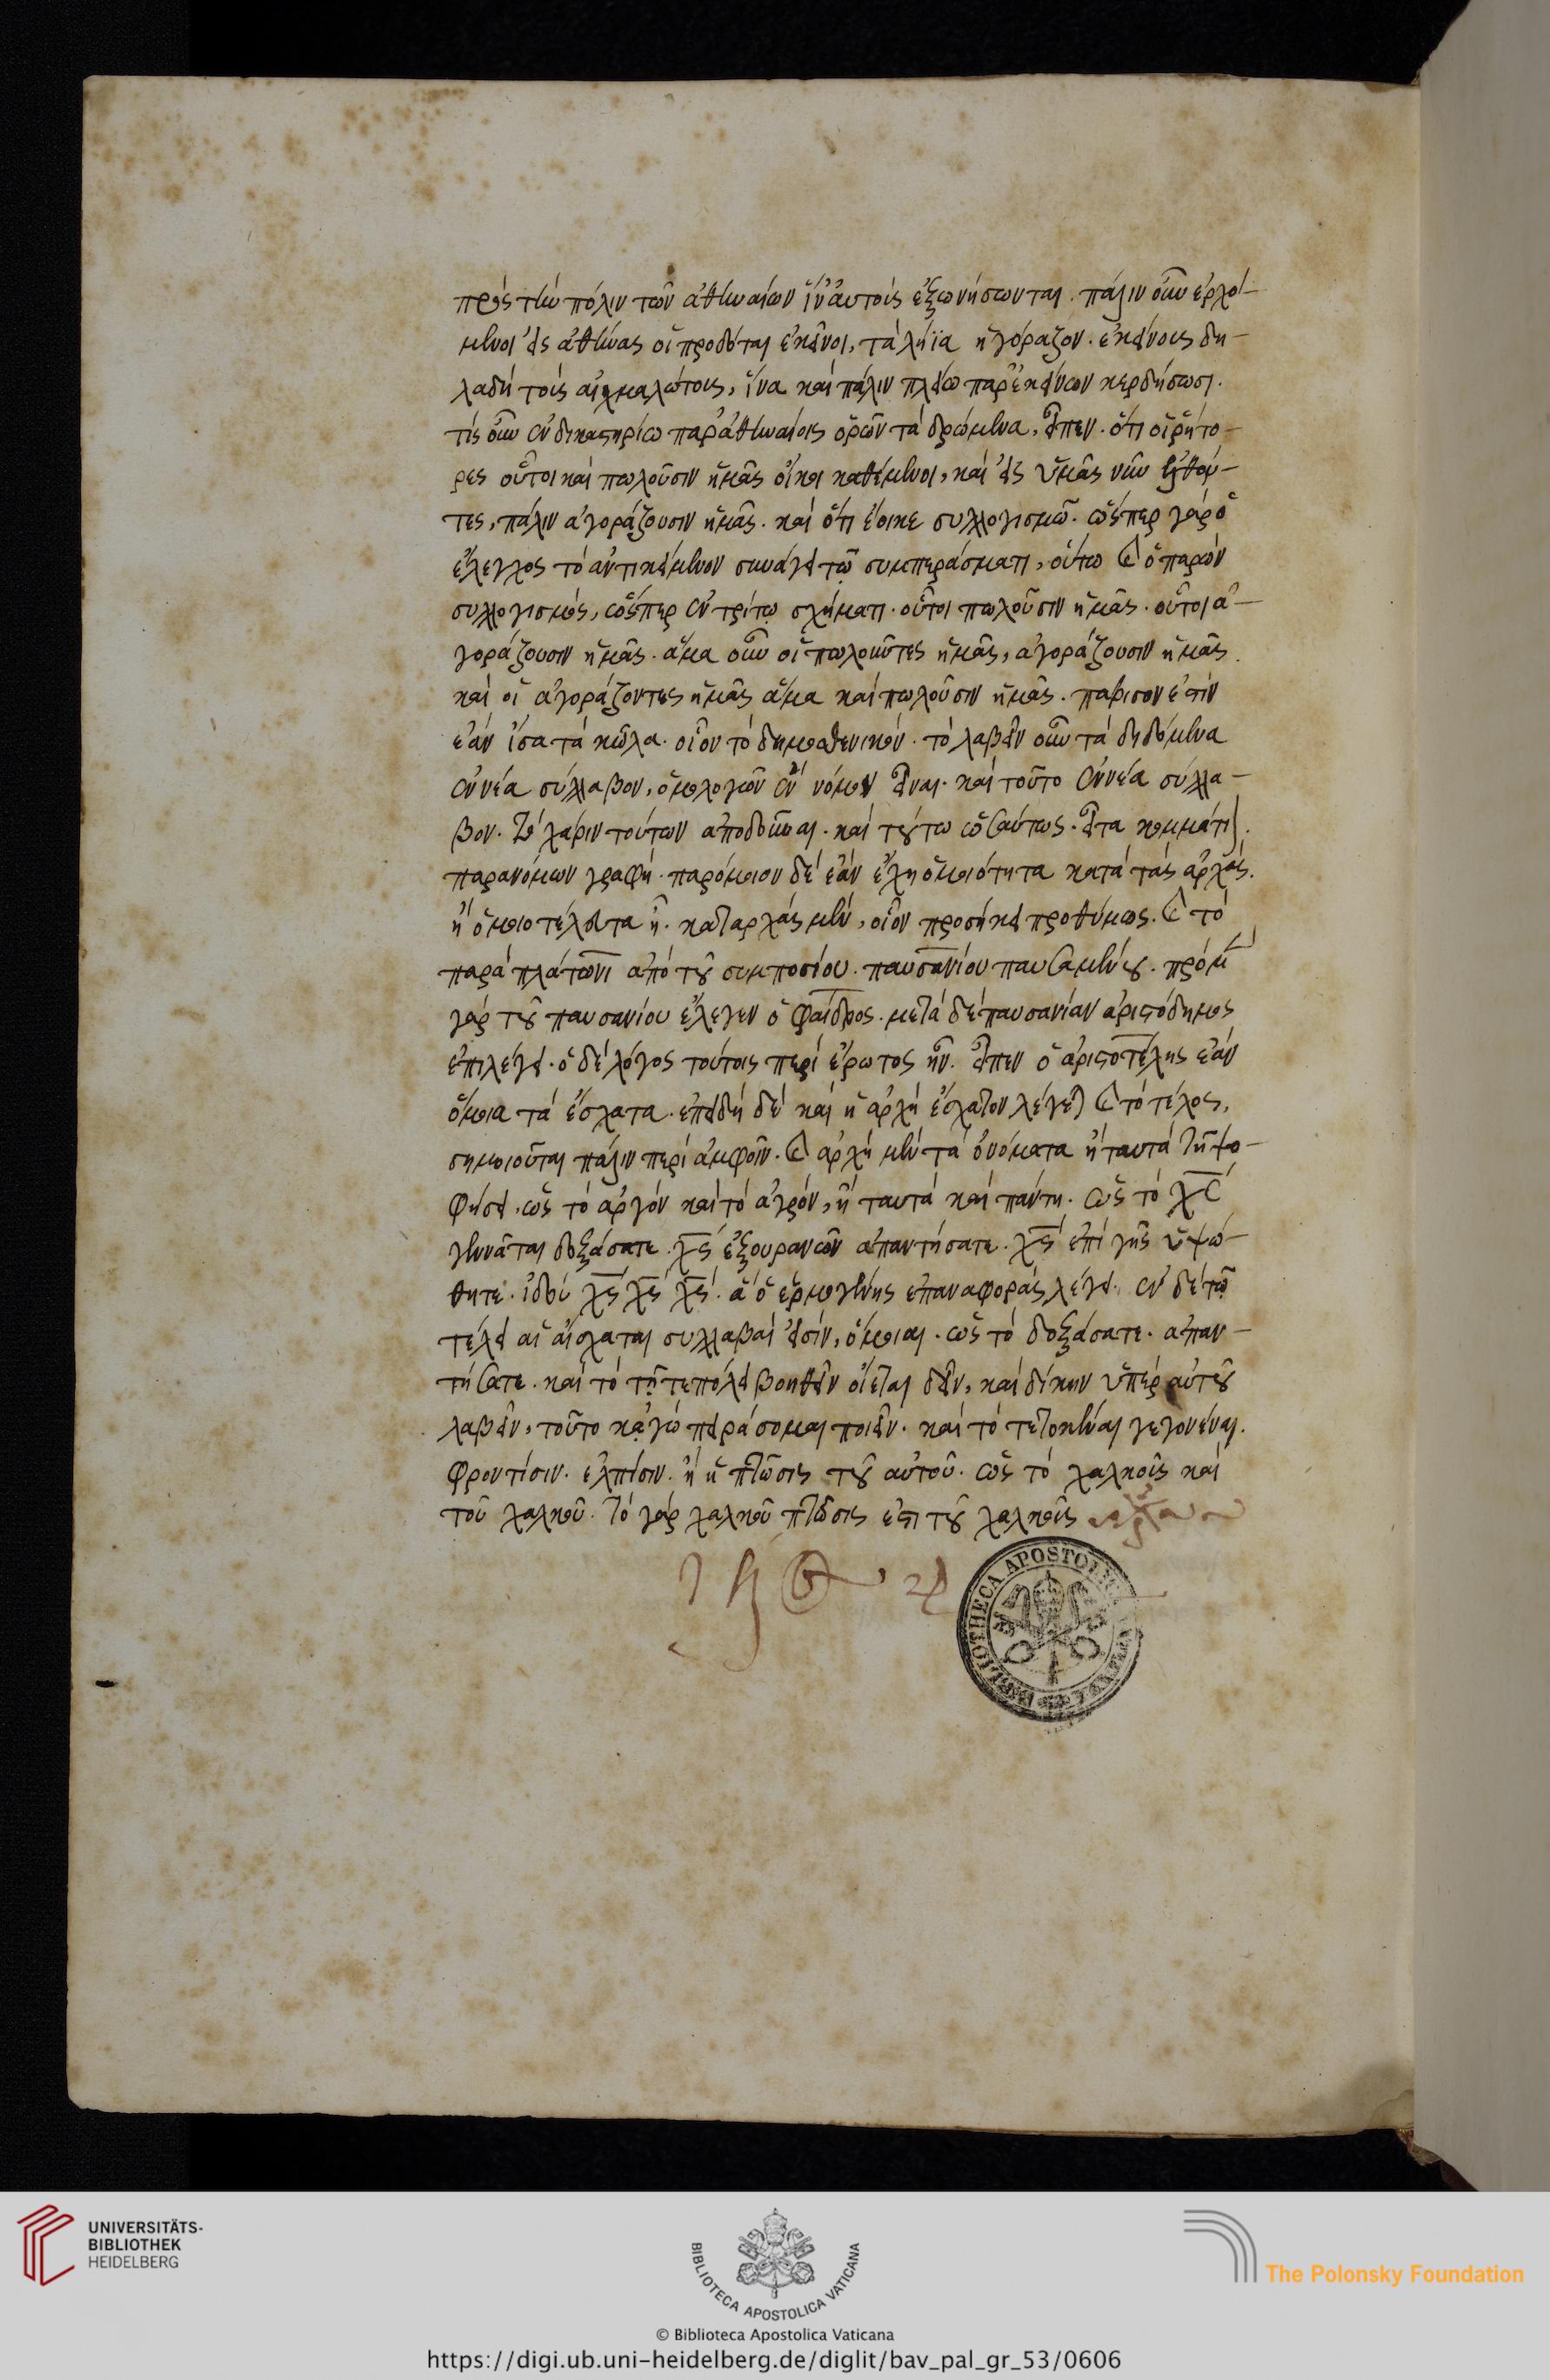 πρὸς τὴν πόλιν τῶν ἀθηναίων ἵν' αὐτοῖς ἐξωνήσωνται. πάλιν οὖν ἐρχό-
μενοι εἰς ἀθήνας οἱ προδόται ἐκεῖνοι, τὰ λήϊα ἠγόραζον. ἐκείνοις δη-
λαδὴ τοῖς αἰχμαλώτοις, ἵνα καὶ πάλιν πλείω παρ' ἐκείνων κερδήσωσι.
τίς οὖν ἐν δικαστηρίω παρ' ἀθηναίοις ὁρῶν τὰ δρώμενα, εἶπεν. ὅτι οἱ ῥήτο-
ρες οὗτοι καὶ πωλοῦσιν ἡμᾶς οἴκοι καθήμενοι, καὶ εἰς ὑμᾶς νῦν ἐλθόν-
τες, πάλιν ἀγοράζουσιν ἡμᾶς. καὶ ὅτι ἔοικε συλλογισμῶ. ὥσπερ γὰρ ὁ
ἔλεγχος τὸ ἀντικείμενον συνάγει τῷ συμπεράσματι, οὕτω καὶ ὁ παρὼν
συλλογισμὸς, ὥσπερ ἐν τρίτῳ σχήματι. οὗτοι πωλοῦσιν ἡμᾶς. οὗτοι ἀ-
γοράζουσιν ἡμᾶς. ἅμα οὖν οἱ πωλοῦντες ἡμᾶς, ἀγοράζουσιν ἡμᾶς.
καὶ οἱ ἀγοράζοντες ἡμᾶς ἅμα καὶ πωλοῦσιν ἡμᾶς. παρισον ἐστὶν
ἐὰν ἴσα τὰ κῶλα. οἷον τὸ δημοσθενικόν. τὸ λαβεῖν οὖν τὰ διδόμενα
ἐννέα σύλλαβον, ὁμολογῶν νόμον εἶναι. καὶ τοῦτο ἐννέα σύλλα-
βον. τὸ χάριν τούτων ἀποδοῦναι. καὶ τούτω ὡσαύτως. εἶτα κομμάτι.
παρανόμων γραφή. παρόμοιον δὲ ἐὰν ἔχη ὁμοιότητα κατὰ τὰς ἀρχὰς.
ἢ ὁμοιοτέλευτα ἦ. κατ' ἀρχὰς μὲν, οἷον προσήκει προθύμως. καὶ τὸ
παρὰ πλάτωνι ἀπὸ τοῦ συμποσίου. παυσανίου παυσαμένου. πρὸ μ
γὰρ τοῦ παυσανίου ἔλεγεν ὁ φαῖδρος. μετὰ δὲ παυσανίαν ἀριστόδημος
ἐπιλέγει. ὁ δὲ λόγος τούτοις περὶ ἔρωτος ἦν. εἶπεν ὁ ἀριστοτέλης ἐὰν
ὅμοια τὰ ἔσχατα. ἐπειδὴ δὲ καὶ ἡ ἀρχὴ ἔσχατον λέγεται καὶ τὸ τέλος,
σημειοῦται πάλιν περὶ ἀμφοῖν. καὶ ἀρχὴ μὲν τὰ ὀνόματα ἢ ταυτὰ τῆ ψο-
φήσει, ὡς τὸ ἀργὸν καὶ τὸ ἀγρὸν, ἢ ταυτὰ καὶ πάντη. ὡς τὸ χς
γεννᾶται δοξάσατε. χς ἐξ οὐρανῶν ἀπαντήσατε. χς ἐπὶ γῆς ὑψώ-
θητε. ἰδοὺ χς χς χς. ἃ ὁ ἑρμογένης ἐπαναφορὰς λέγει. ἐν δὲ τῷ
τέλει αἱ αἴσχαται συλλαβαὶ εἰσὶν, ὅμοιαι. ὡς τὸ δοξάσατε. ἀπαν-
τήσατε. καὶ τὸ τῇ τε πόλει βοηθεῖν οἴεται δεῖν, καὶ δίκην ὑπὲρ αὑτοῦ
λαβεῖν, τοῦτο κἀγὼ πειράσομαι ποιεῖν. καὶ τὸ τετοκέναι γεγονέναι.
φροντίσιν. ἐλπίσιν. ἢ ἡ πτῶσις τοῦ αὐτοῦ. ὡς τὸ χαλκοῦς καὶ
τοῦ χαλκοῦ. τὸ γὰρ χαλκοῦ πτῶσις ἐστι τοῦ χαλκοῦς
BIBLIOTHECA APOSTOLICA VATICANA
UNIVERSITÄTS-
BIBLIOTHEK
HEIDELBERG
BIBLIOTECA APOSTOLICA VATICANA
The Polonsky Foundation
© Biblioteca Apostolica Vaticana
https://digi.ub.uni-heidelberg.de/diglit/bav_pal_gr_53/0606